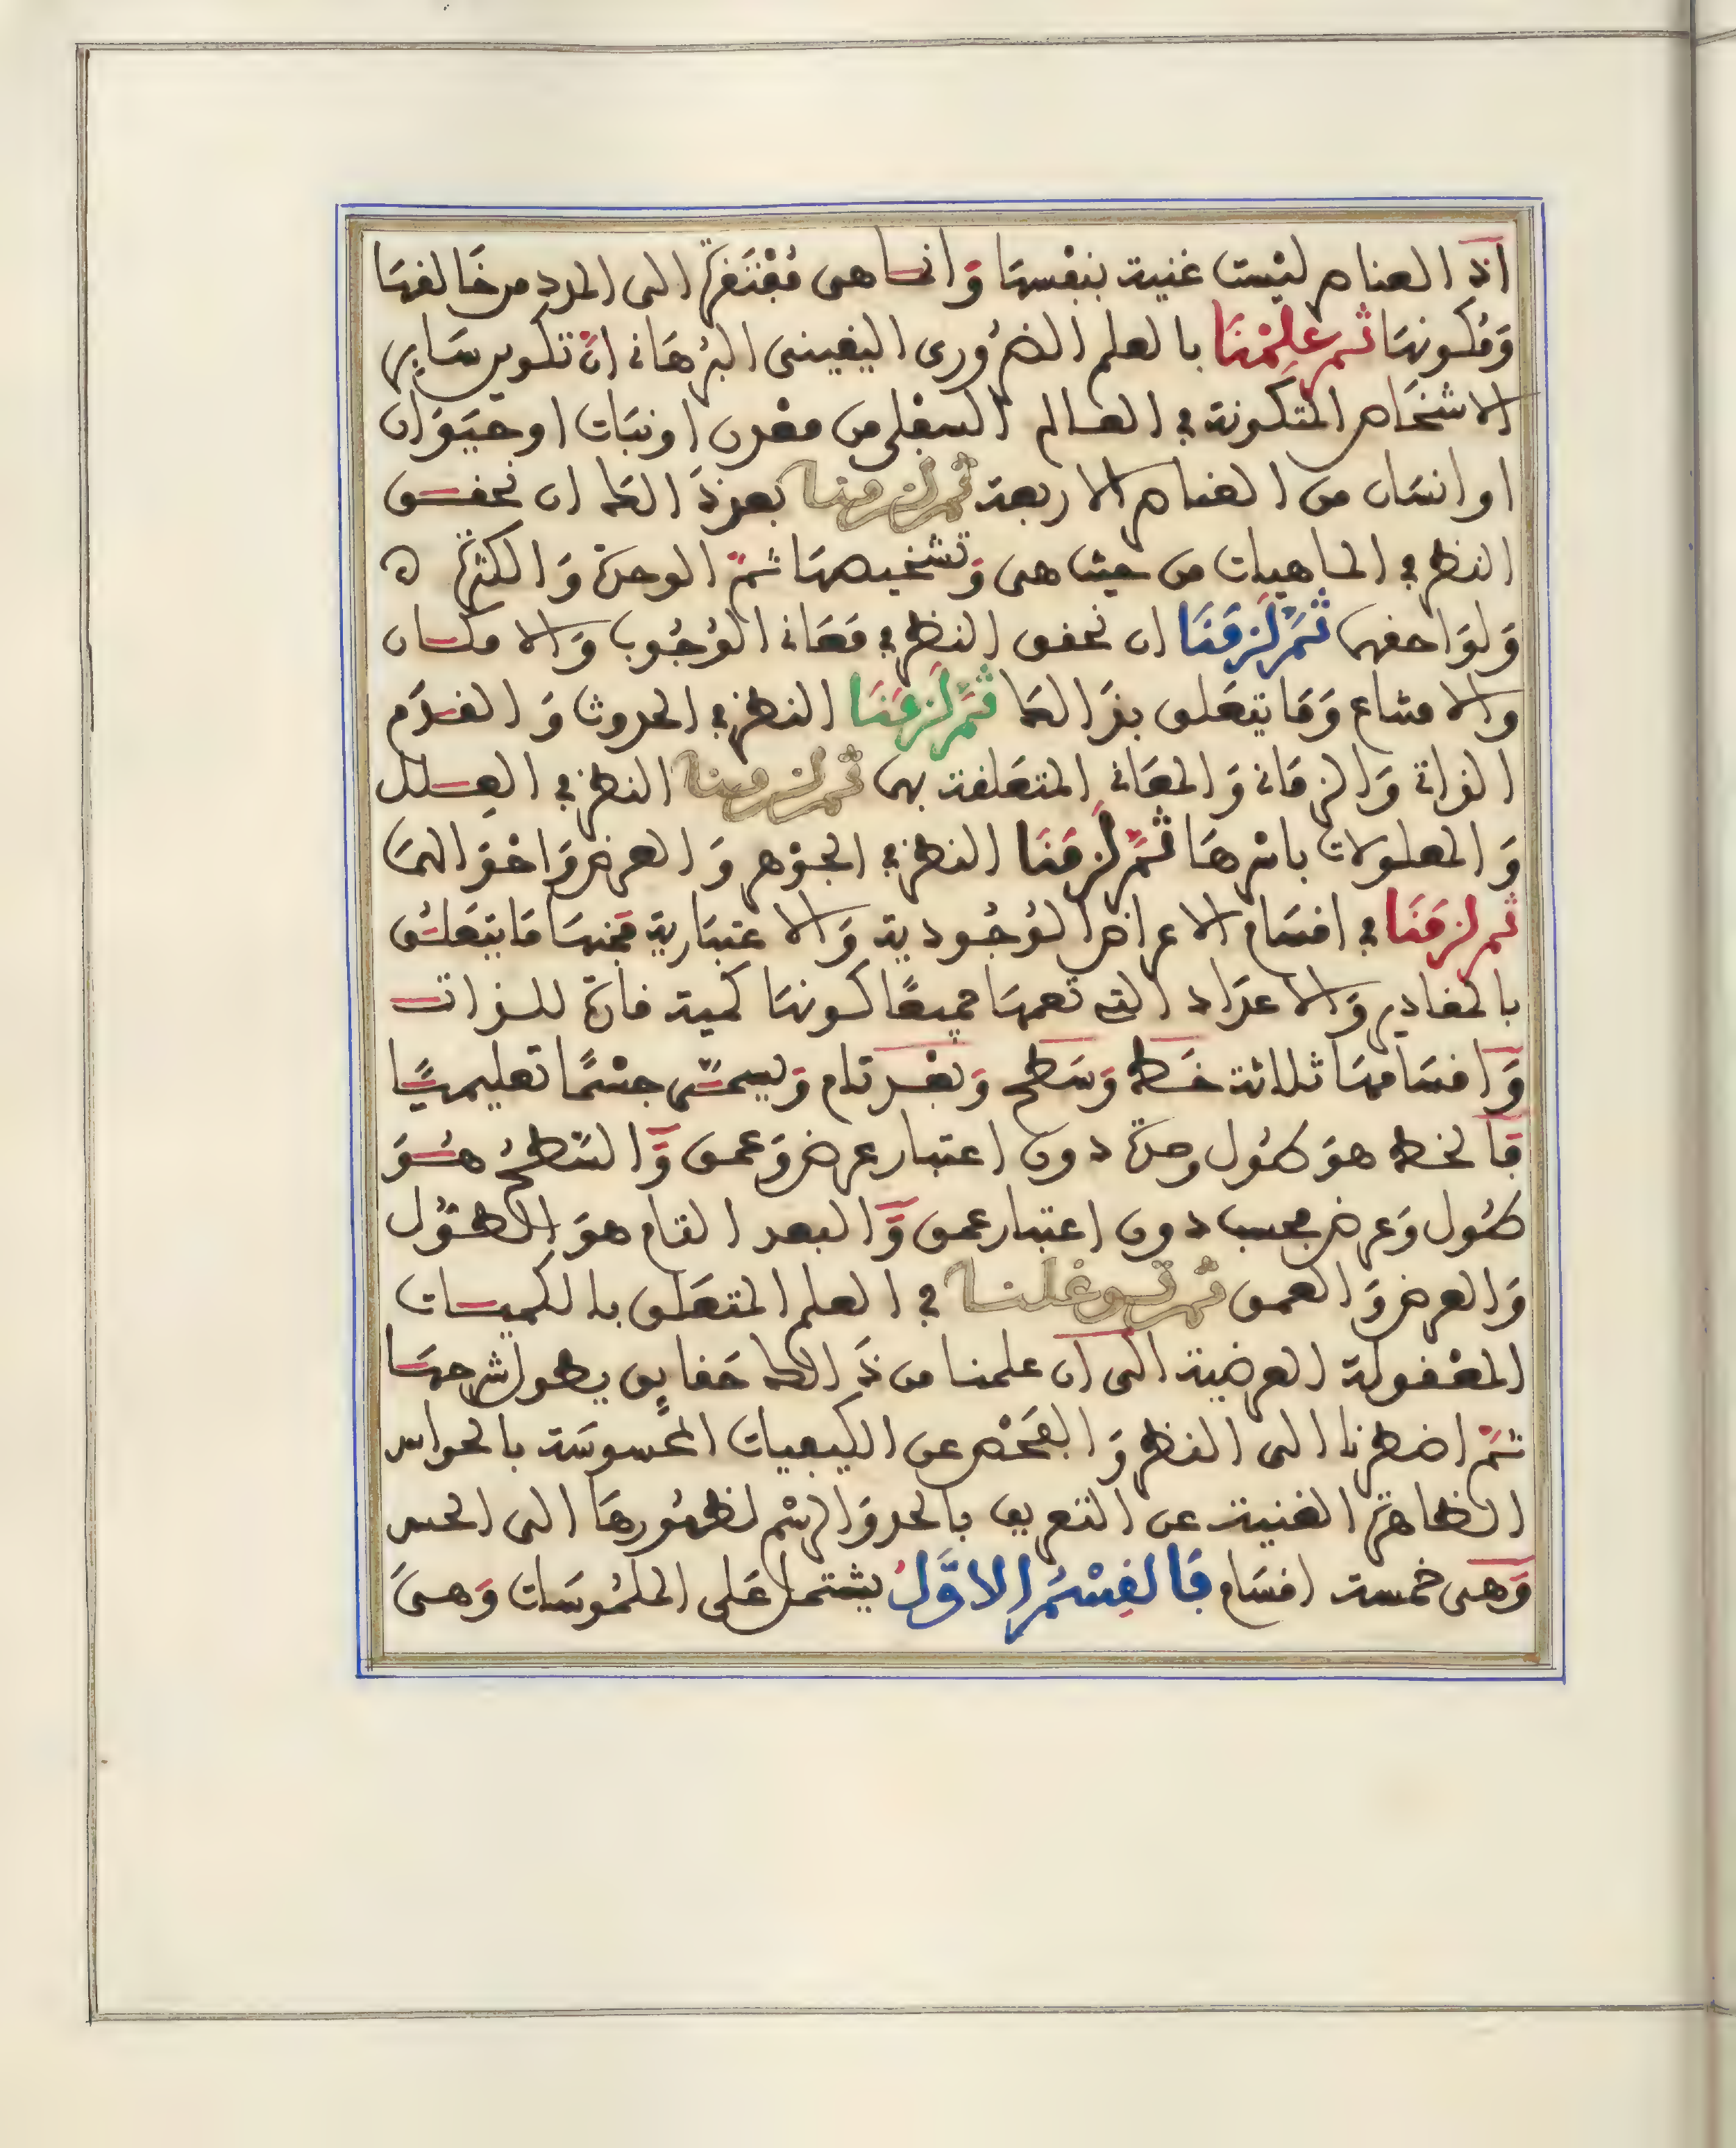 اذ العناصر ليْست غنية بنفْسها وَانما هى مُفْتَقرة الى المدد من خَالقهَا
وَمُكونهَا ثم عَلِمْنَا بالعلم الضرُورى اليقينى البُرهَانى انّ تكوين سَاير
الاشخَاص المتكونة في العالم السفلى من معْدن او نبَات او حَيَوَان
او انسَان من العناصر الاربعة ثم لزمنا بعد ذَالك ان نحقق
النظر في الماهيات من حيث هى وَتشخيصهَا ثمّ الوحدة وَالكثرة
وَلوَاحقهما ثمَّ لَزمَنَا ان نحقق النظر في مَعَانى الوُجُوب وَالامكان
وَالامتناع وَمَا يتعَلق بذَالك ثمَّ لَزمَنَا النظر في الحدوث وَالقدَم
الذاتى وَالزمَانى وَالمعَانى المتعَلقة بهما ثم لزمنا النظر في العِلل
وَالمعلولات باسْرهَا ثمَّ لَزمَنَا النظر في الجوْهر وَالعرض وَاحْوَالهمَا
ثم لزمَنَا في اقسَام الاعراض الوُجُودية وَالاعتبَارية فمنهَا مَا يتعَلق
بالمقادير وَالاعدَاد التى تعمهَا جميعًا كونهَا كمية قارة للذات
وَاقسَامهَا ثلاثة خَط وَسَطح وَبعْد تام وَيسمّى جسْمًا تعليميًّا
فَالخط هوَ طُول وحدة دون اعتبار عرض وَعمق وَالسَّطحُ هُوَ
طُول وَعرض فحسب دون اعتبار عمق وَالبعد التام هوَ الطوُل
وَالعرض وَالعمق ثم توغلنا في العلم المتعَلق بالكميات
المعْقولة العرضية الى ان علمنا من ذَالك حَقايق يطول شرحهَا
ثمّ اضطرنا الى النظر وَالفَحْص عن الكيفيات المحسوسَة بالحواس
الظاهرة الغنية عن التعريف بالحد وَالرسْم لظهُورهَا الى الحس
وَهى خمسة اقسَام فَالقِسْمُ الاوَّلُ يشتمل عَلى الملمُوسَات وَهىَ